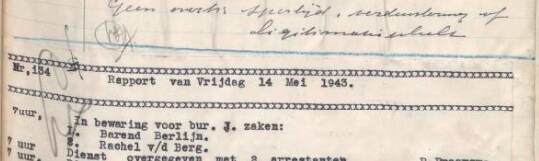 Geen overtr. spertijd, verduistering of
legitimatieplicht
xxxxxxxxxxxxxxxxxxxxxxxxxxxxxxxxxxxxxxxxxxxxxxxxxxxxxxxxxxxxxxx
Nr,134 Rapport van Vrijdag 14 Mei 1943.
xxxxxxxxxxxxxxxxxxxxxxxxxxxxxxxxxxxxxxxxxxxxxxxxxxxxxxxxxxxxxxx
7uur, In bewaring voor bur. J. zaken:
1. Barend Berlijn.
2. Rachel v/d Berg.
7 uur Dienst overgegeven met 2 arrestanten
7 uur